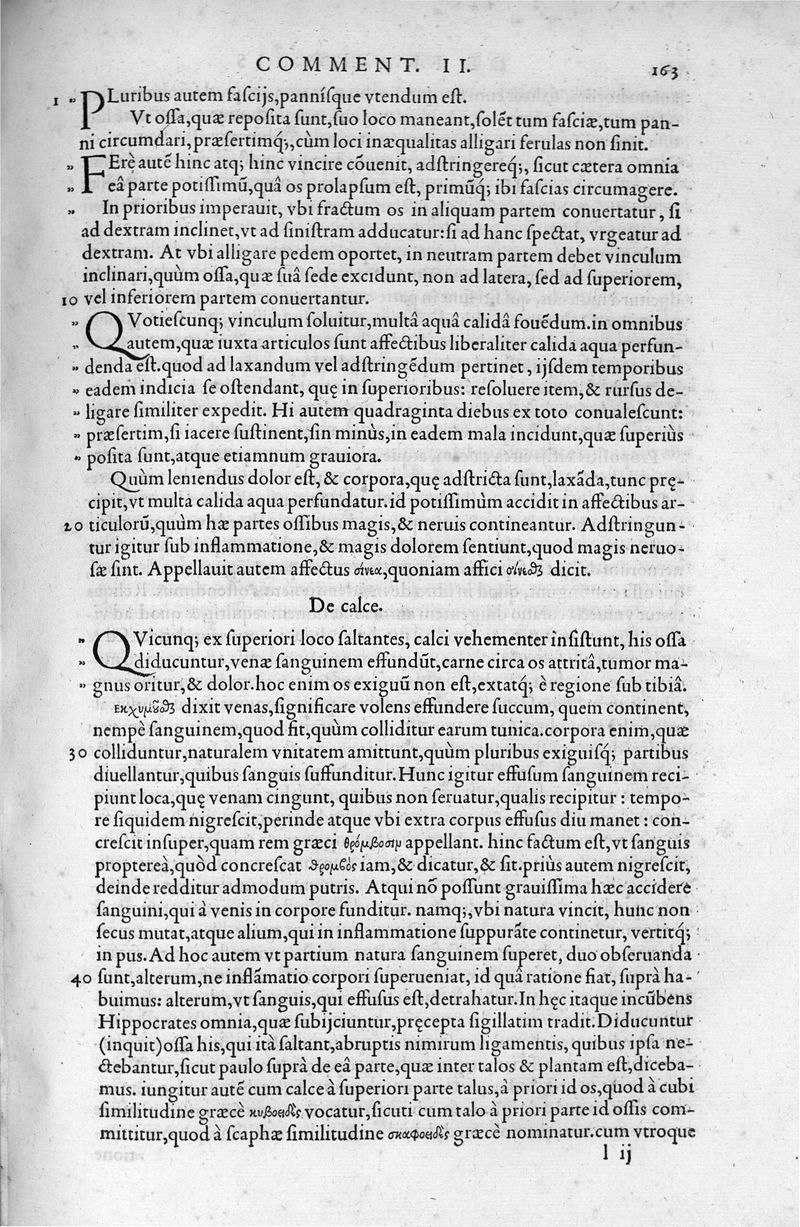 COMMENT. II. 163
1 » PLuribus autem faſcijs,panníſque vtendum eſt.
Vt oſſa,quæ repoſita ſunt,ſuo loco maneant,ſolẽt tum faſciæ,tum pan-
ni circumdari,præſertimq́;,cùm loci inæqualitas alligari ferulas non ſinit.
» FErè autẽ hinc atq; hinc vincire cõuenit, adſtringereq́;, ſicut cætera omnia
» eâ parte potiſſimũ,quâ os prolapſum eſt, primũq́; ibi faſcias circumagere.
» In prioribus imperauit, vbi fractum os in aliquam partem conuertatur, ſi
ad dextram inclinet,vt ad ſiniſtram adducatur:ſi ad hanc ſpectat, vrgeatur ad
dextram. At vbi alligare pedem oportet, in neutram partem debet vinculum
inclinari,quùm oſſa,quæ ſuâ ſede excidunt, non ad latera, ſed ad ſuperiorem,
10 vel inferiorem partem conuertantur.
» QVotieſcunq; vinculum ſoluitur,multâ aquâ calidâ fouẽdum.in omnibus
» autem,quæ iuxta articulos ſunt affectibus liberaliter calida aqua perfun-
» denda eſt.quod ad laxandum vel adſtringẽdum pertinet, ijſdem temporibus
» eadem indicia ſe oſtendant, quę in ſuperioribus: reſoluere item,& rurſus de-
» ligare ſimiliter expedit. Hi autem quadraginta diebus ex toto conualeſcunt:
» præſertim,ſi iacere ſuſtinent,ſin minùs,in eadem mala incidunt,quæ ſuperiùs
» poſita ſunt,atque etiamnum grauiora.
Quùm leniendus dolor eſt, & corpora,quę adſtricta ſunt,laxãda,tunc prę-
cipit,vt multa calida aqua perfundatur.id potiſſimùm accidit in affectibus ar-
20 ticulorũ,quùm hæ partes oſſibus magis,& neruis contineantur. Adſtringun-
tur igitur ſub inflammatione,& magis dolorem ſentiunt,quod magis neruo-
ſæ ſint. Appellauit autem affectus σίνεα,quoniam affici dicit.
De calce.
» QVicunq; ex ſuperiori loco ſaltantes, calci vehementer inſiſtunt, his oſſa
» diducuntur,venæ ſanguinem effundũt,carne circa os attritâ,tumor ma-
» gnus oritur,& dolor.hoc enim os exiguũ non eſt,extatq́; è regione ſub tibiâ.
dixit venas,ſignificare volens effundere ſuccum, quem continent,
nempè ſanguinem,quod fit,quùm colliditur earum tunica.corpora enim,quæ
30 colliduntur,naturalem vnitatem amittunt,quùm pluribus exiguiſq́; partibus
diuellantur,quibus ſanguis ſuffunditur.Hunc igitur effuſum ſanguinem reci-
piunt loca,quę venam cingunt, quibus non ſeruatur,qualis recipitur : tempo-
re ſiquidem nigreſcit,perinde atque vbi extra corpus effuſus diu manet : con-
creſcit inſuper,quam rem græci θρόμβοσιμ appellant. hinc factum eſt,vt ſanguis
proptereà,quòd concreſcat ϑρομβὸς iam,& dicatur,& ſit.priùs autem nigreſcit,
deinde redditur admodum putris. Atqui nõ poſſunt grauiſſima hæc accidere
ſanguini,qui à venis in corpore funditur. namq́;,vbi natura vincit, hunc non
ſecus mutat,atque alium,qui in inflammatione ſuppurãte continetur, vertitq́;
in pus.Ad hoc autem vt partium natura ſanguinem ſuperet, duo obſeruanda
40 ſunt,alterum,ne inflãmatio corpori ſuperueniat, id quâ ratione fiat, ſuprà ha-
buimus: alterum,vt ſanguis,qui effuſus eſt,detrahatur.In hęc itaque incũbens
Hippocrates omnia,quæ ſubijciuntur,pręcepta ſigillatim tradit.Diducuntur
(inquit)oſſa his,qui ità ſaltant,abruptis nimirum ligamentis, quibus ipſa ne-
ctebantur,ſicut paulo ſuprà de eâ parte,quæ inter talos & plantam eſt,diceba-
mus. iungitur autẽ cum calce à ſuperiori parte talus,à priori id os,quod à cubi
ſimilitudine græcè κυβοειδὲς vocatur,ſicuti cum talo à priori parte id oſſis com-
mittitur,quod à ſcaphæ ſimilitudine σκαφοειδὲς græcè nominatur.cum vtroque
l ij